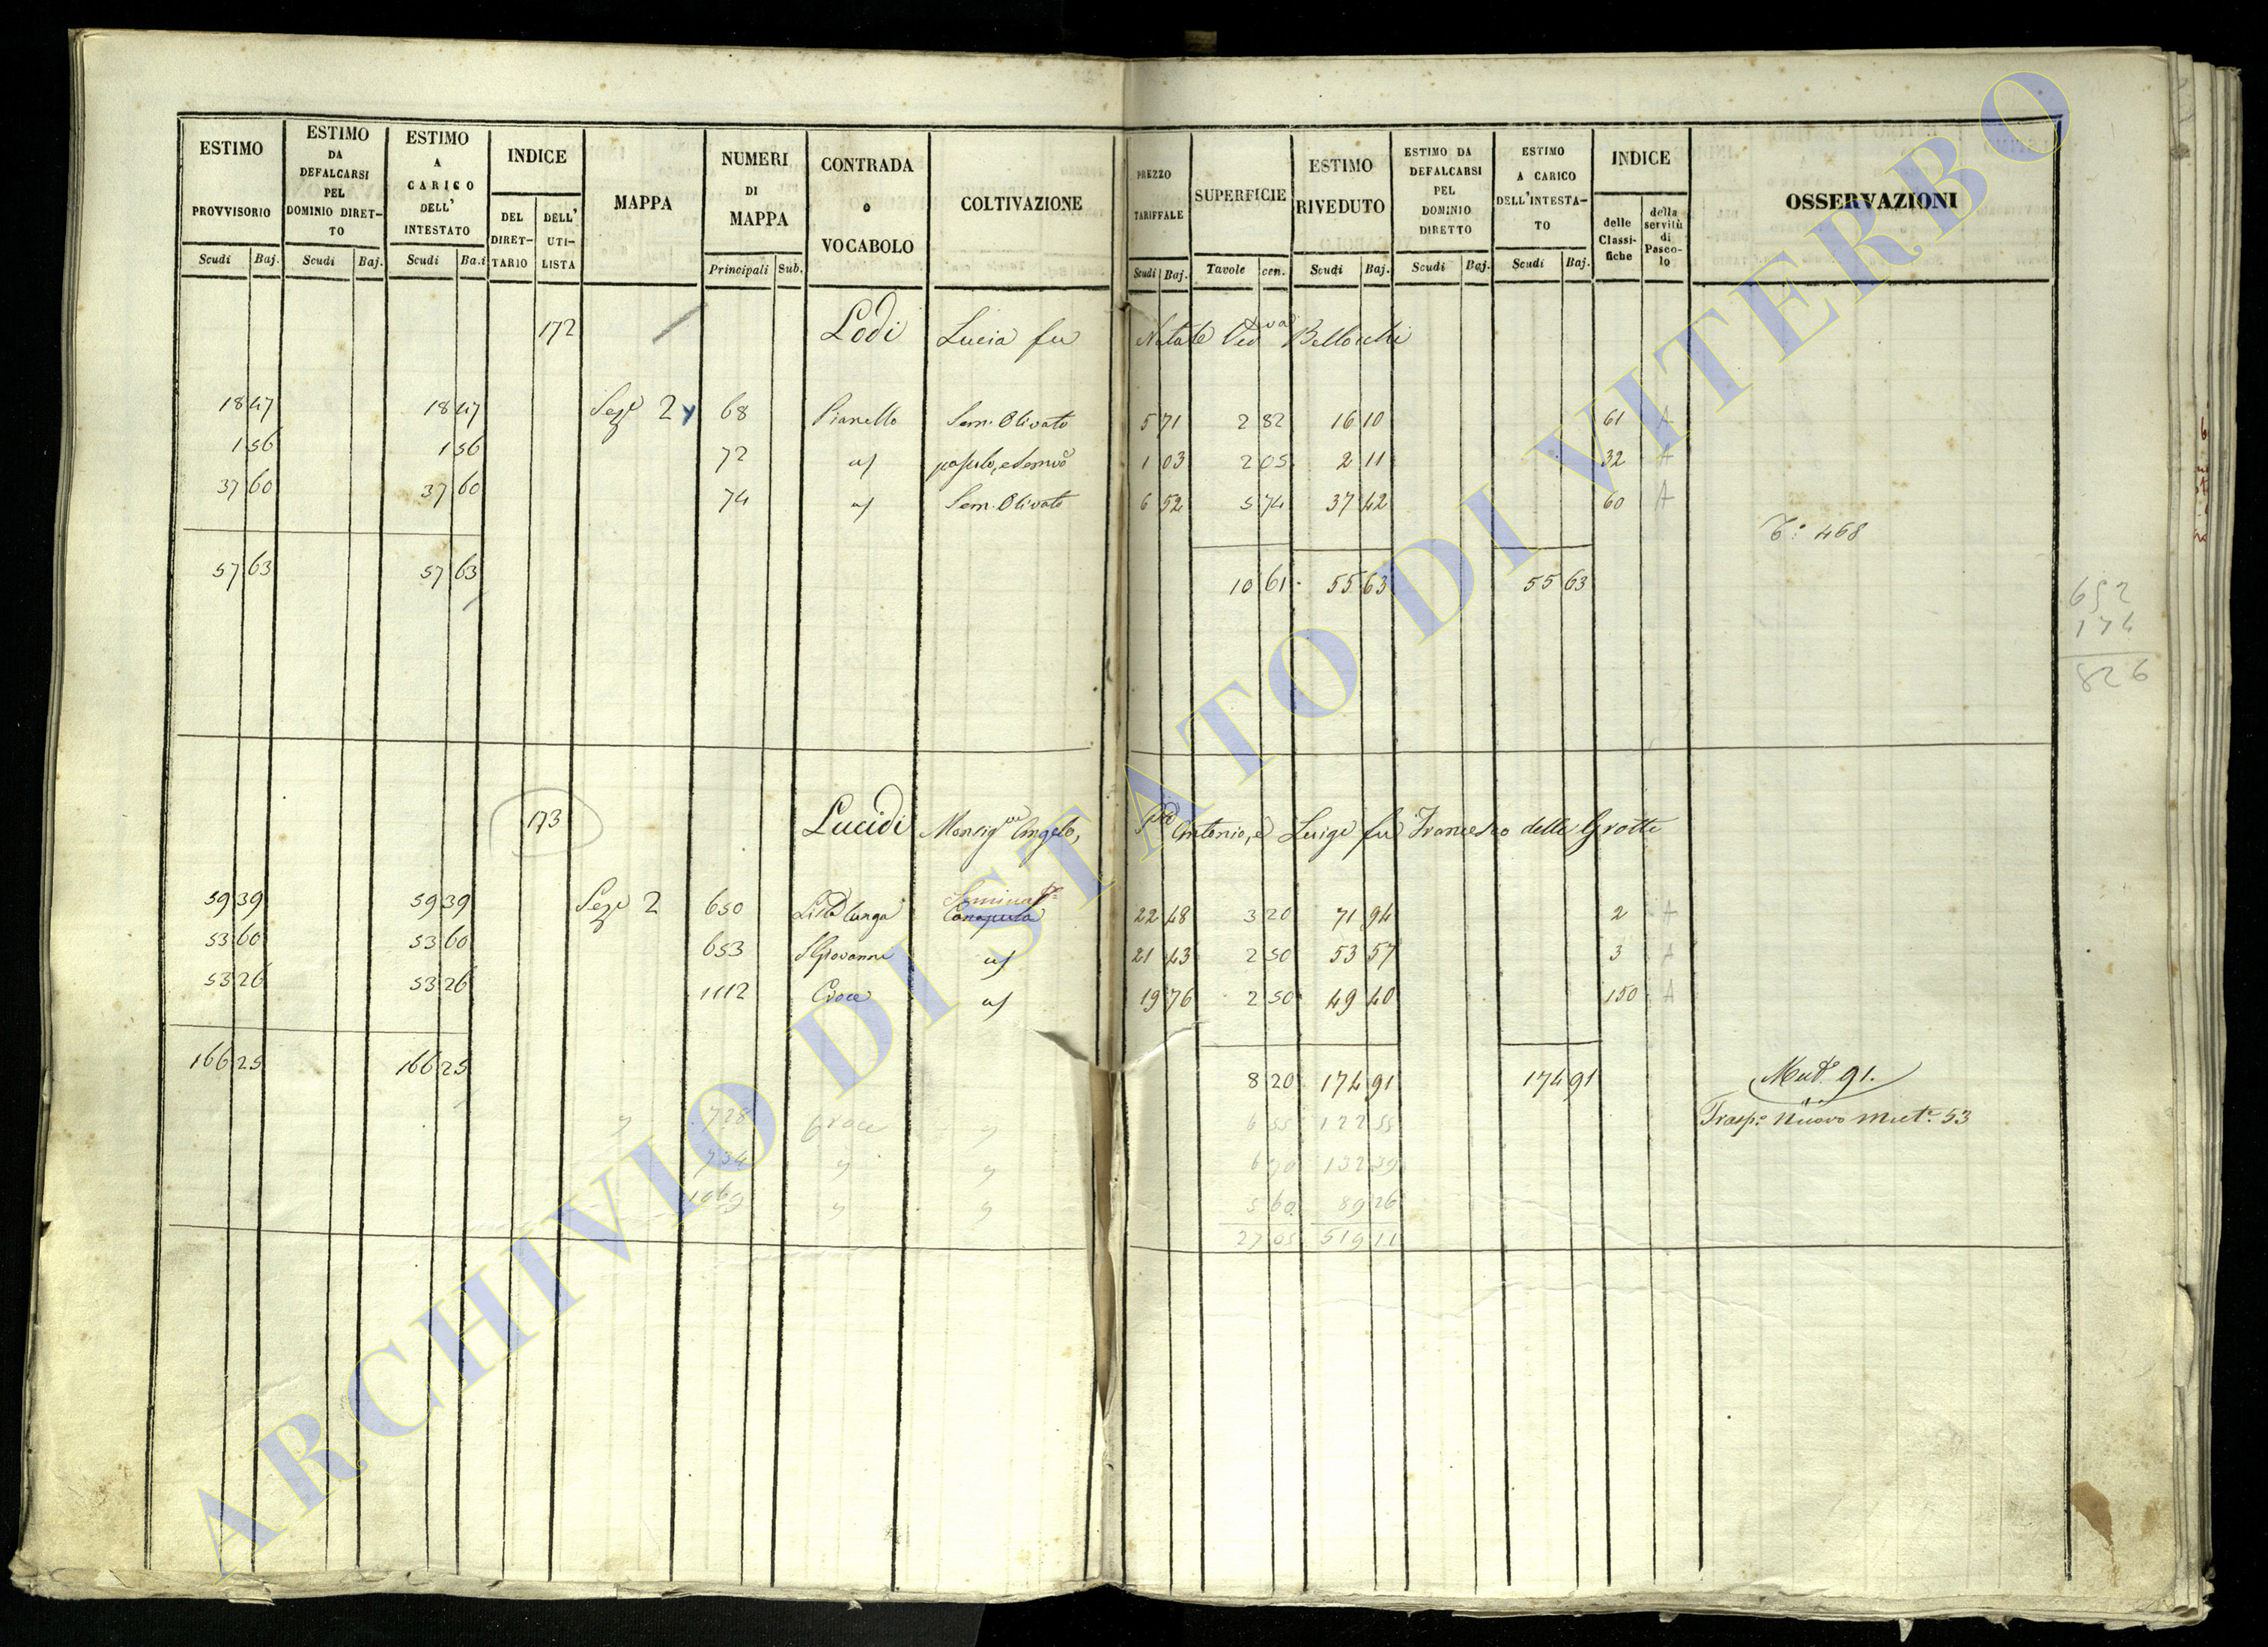 ESTIMO PROVVISORIO Scudi Baj.
ESTIMO DA DEFALCARSI PEL DOMINIO DIRET-TO Scudi Baj.
ESTIMO A CARICO DELL' INTESTATO Scudi Ba.i
INDICE DEL DIRET-TARIO DELL' UTI-LISTA
MAPPA
NUMERI DI MAPPA Principali Sub.
CONTRADA o VOCABOLO
COLTIVAZIONE
PREZZO TARIFFALE Scudi Baj.
SUPERFICIE Tavole cen.
ESTIMO RIVEDUTO Scudi Baj.
ESTIMO DA DEFALCARSI PEL DOMINIO DIRETTO Scudi Baj.
ESTIMO A CARICO DELL'INTESTA-TO Scudi Baj.
INDICE delle Classi-fiche della servitù di Pasco-lo
OSSERVAZIONI
172 Lodi Lucia fu Natale Ved va Bellocchi
18 47 18 47 Sez.e 2 68 Pianello Sem. Olivato 5 71 2 82 16 10 61 A
1 56 1 56 72 " 1 03 2 05 2 11 32 A
37 60 37 60 74 " Sem. Olivato 6 52 5 74 37 42 60 A
T.o 468
57 63 57 63 10 61 55 63 55 63
652
174
826
173 Lucidi Monsig.or Angelo, Antonio, e Luigi fu Francesco delle Grotte
59 39 59 39 Sez.e 2 650 Lista lunga Canapula 22 48 3 20 71 94 2 A
53 60 53 60 653 S Giovanni " 21 43 2 50 53 57 3 A
53 26 53 26 1112 Croce " 19 76 2 50 49 40 150 A
166 25 166 25 8 20 174 91 174 91 Mut.e 91.
" 728 Croce " 6 55 122 55 Trasp.o Nuovo Mut.e 53
734 " " 6 70 132 39
1069 " " 5 60 89 26
27 05 519 11
ARCHIVIO DI STATO DI VITERBO